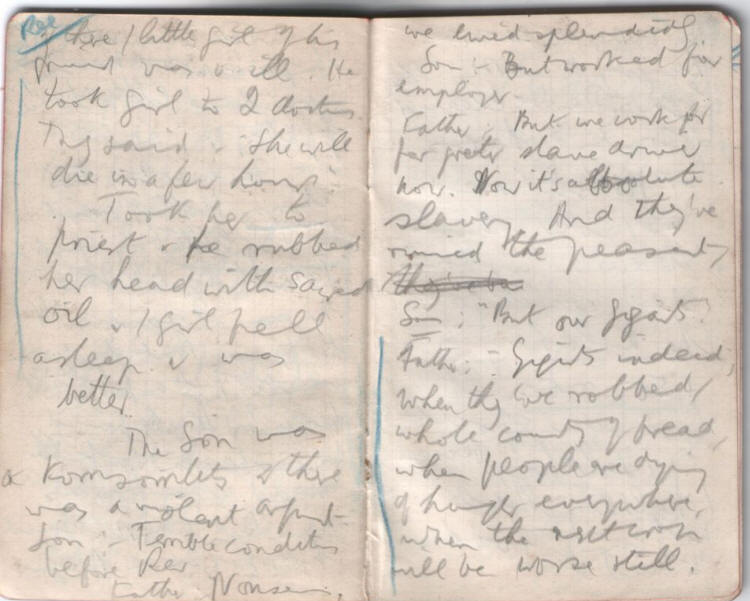 Rel
There / little girl of his
friend was v. ill. He
took girl to 2 doctors
They said :- She will
die in a few hours.
Took her to
priest & he rubbed
her head with sacred
oil & / girl fell
asleep & was
better.
The Son was
a Komsomolets & there
was a violent argument
Son :- Terrible conditions
before Rev
Father Nonsense,
we lived splendidly
Son :- But worked for
employer.
Father, But we work for
far greater slave driver
now. Now it's absolute
slavery. And they've
ruined the peasants,
Son : "But our Gigants.
Father :- Gigants indeed,
when they've robbed /
whole country of bread,
when people are dying
of hunger everywhere,
when the next crop
will be worse still.